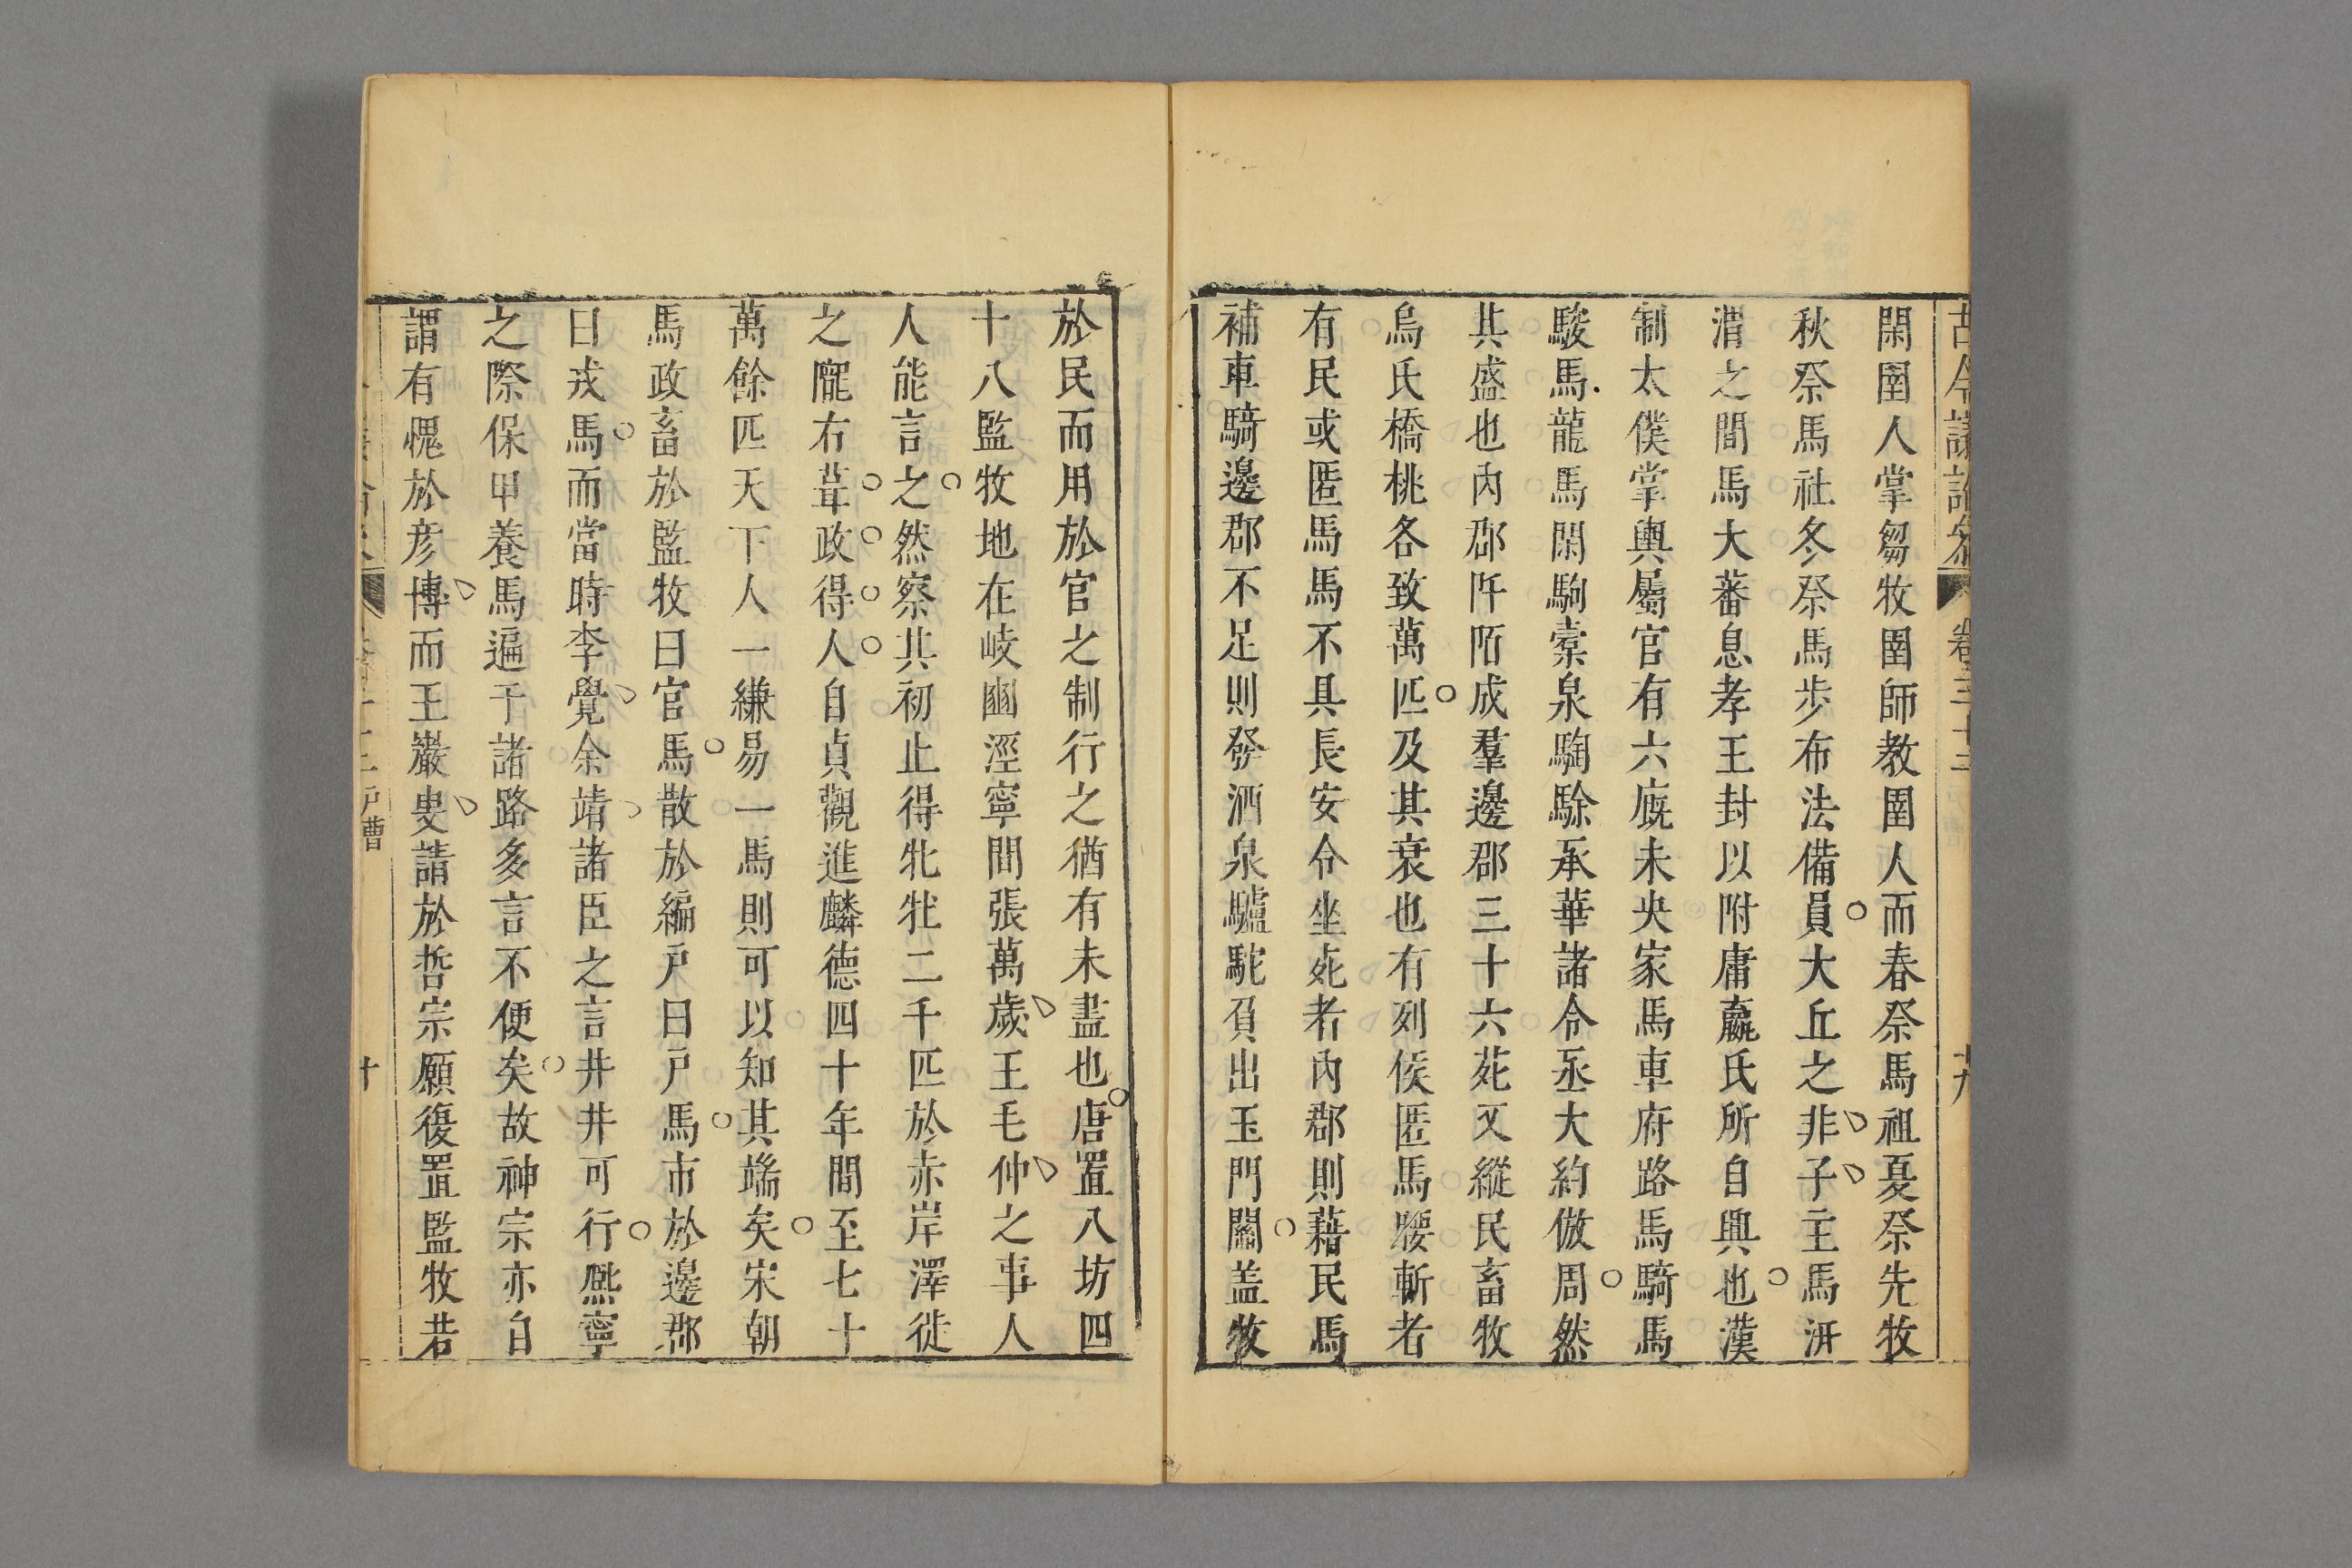 古今議論參
卷三十三
閑圉人掌芻牧圉師教圉人而春祭馬祖夏祭先牧
秋祭馬社冬祭馬步布法備員大丘之非子主馬汧
渭之間馬大蕃息孝王封以附庸嬴氏所自興也漢
制太僕掌輿屬官有六廐未央家馬車府路馬騎馬
駿馬龍馬閑駒橐泉騊駼承華諸令丞大約倣周然
其盛也內郡阡陌成羣邊郡三十六苑又縱民畜牧
烏氏橋桃各致萬匹及其衰也有列侯匿馬腰斬者
有民或匿馬馬不具長安令坐死者內郡則藉民馬
補車騎邊郡不足則發酒泉驢駝負出玉門關盖牧
於民而用於官之制行之猶有未盡也唐置八坊四
十八監牧地在岐豳涇寧間張萬歲王毛仲之事人
人能言之然察其初止得牝牡二千匹於赤岸澤徙
之隴右葺政得人自貞觀進麟德四十年間至七十
萬餘匹天下人一縑易一馬則可以知其端矣宋朝
馬政畜於監牧曰官馬散於編戶曰戶馬市於邊郡
曰戎馬而當時李覺余靖諸臣之言井井可行熈寧
之際保甲養馬遍于諸路多言不便矣故神宗亦自
謂有愧於彥博而王巖叟請於哲宗願復置監牧昔
戶曹
十